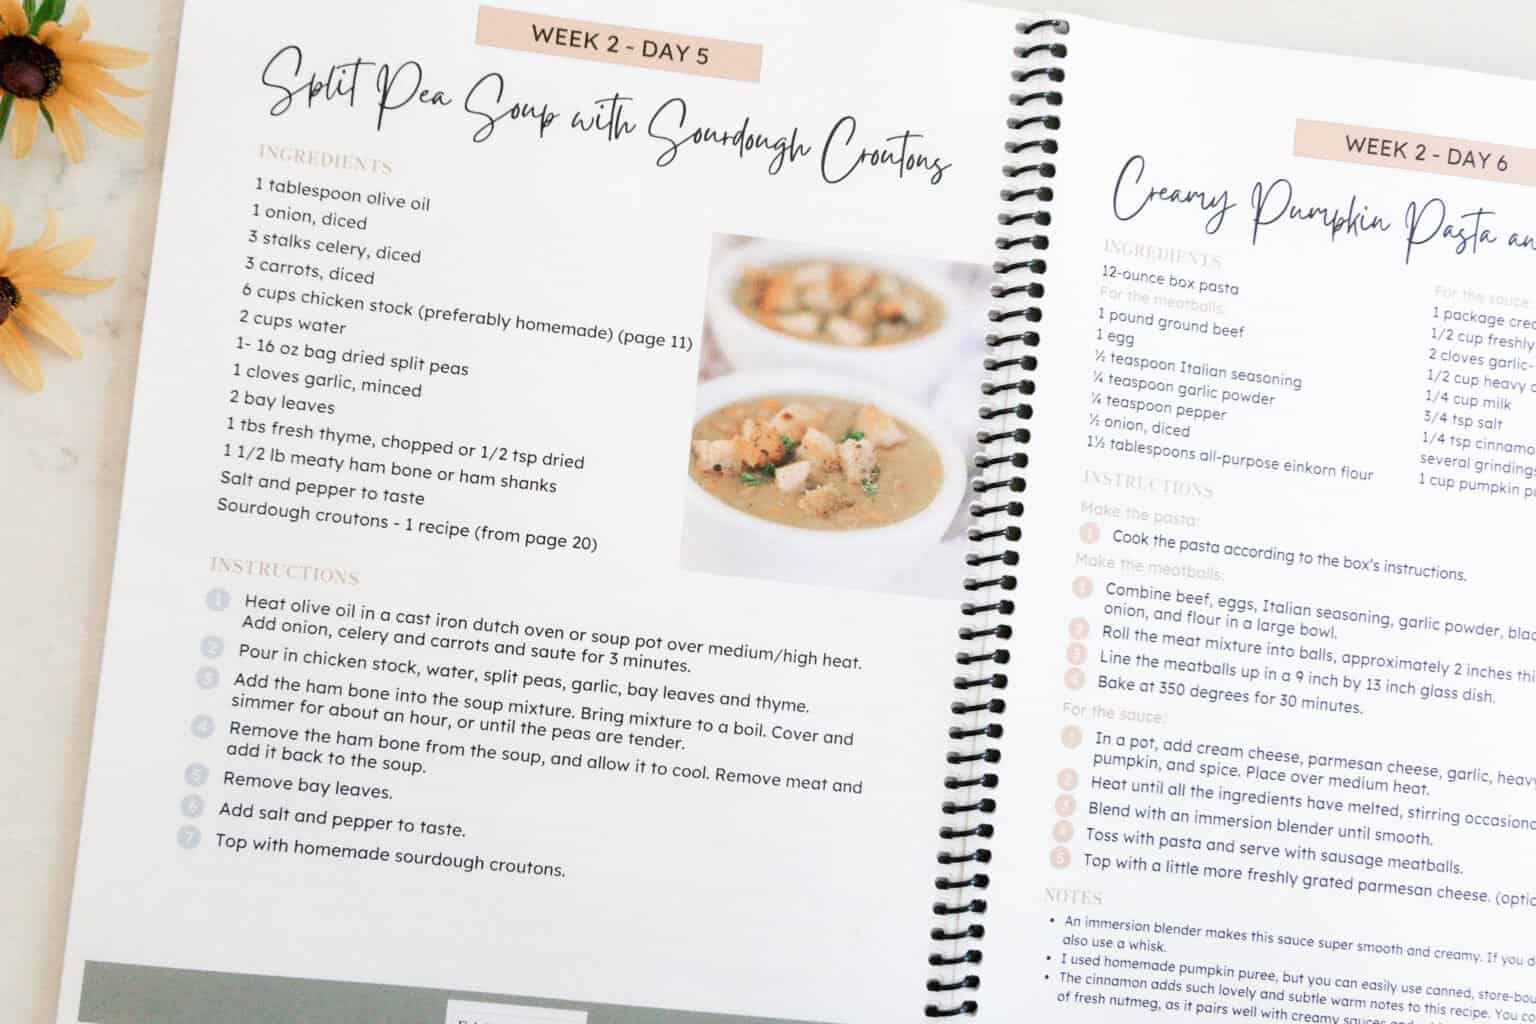 WEEK 2 - DAY 5
Split Pea Soup with Sourdough Croutons
INGREDIENTS
1 tablespoon olive oil
1 onion, diced
3 stalks celery, diced
3 carrots, diced
6 cups chicken stock (preferably homemade) (page 11)
2 cups water
1- 16 oz bag dried split peas
1 cloves garlic, minced
2 bay leaves
1 tbs fresh thyme, chopped or 1/2 tsp dried
1 1/2 lb meaty ham bone or ham shanks
Salt and pepper to taste
Sourdough croutons - 1 recipe (from page 20)
INSTRUCTIONS
1 Heat olive oil in a cast iron dutch oven or soup pot over medium/high heat.
Add onion, celery and carrots and saute for 3 minutes.
2 Pour in chicken stock, water, split peas, garlic, bay leaves and thyme.
3 Add the ham bone into the soup mixture. Bring mixture to a boil. Cover and
simmer for about an hour, or until the peas are tender.
4 Remove the ham bone from the soup, and allow it to cool. Remove meat and
add it back to the soup.
5 Remove bay leaves.
6 Add salt and pepper to taste.
7 Top with homemade sourdough croutons.
WEEK 2 - DAY 6
Creamy Pumpkin Pasta an
INGREDIENTS
12-ounce box pasta
For the meatballs:
1 pound ground beef
1 egg
½ teaspoon Italian seasoning
¼ teaspoon garlic powder
¼ teaspoon pepper
½ onion, diced
1½ tablespoons all-purpose einkorn flour
For the sauce:
1 package crea
1/2 cup freshly
2 cloves garlic-
1/2 cup heavy c
1/4 cup milk
3/4 tsp salt
1/4 tsp cinnamo
several grinding
1 cup pumpkin pu
INSTRUCTIONS
Make the pasta:
1 Cook the pasta according to the box's instructions.
Make the meatballs:
1 Combine beef, eggs, Italian seasoning, garlic powder, blac
onion, and flour in a large bowl.
2 Roll the meat mixture into balls, approximately 2 inches thi
3 Line the meatballs up in a 9 inch by 13 inch glass dish.
4 Bake at 350 degrees for 30 minutes.
For the sauce:
1 In a pot, add cream cheese, parmesan cheese, garlic, heavy
pumpkin, and spice. Place over medium heat.
2 Heat until all the ingredients have melted, stirring occasiona
3 Blend with an immersion blender until smooth.
4 Toss with pasta and serve with sausage meatballs.
5 Top with a little more freshly grated parmesan cheese. (optio
NOTES
• An immersion blender makes this sauce super smooth and creamy. If you d
also use a whisk.
• I used homemade pumpkin puree, but you can easily use canned, store-bou
• The cinnamon adds such lovely and subtle warm notes to this recipe. You co
of fresh nutmeg, as it pairs well with creamy sauces